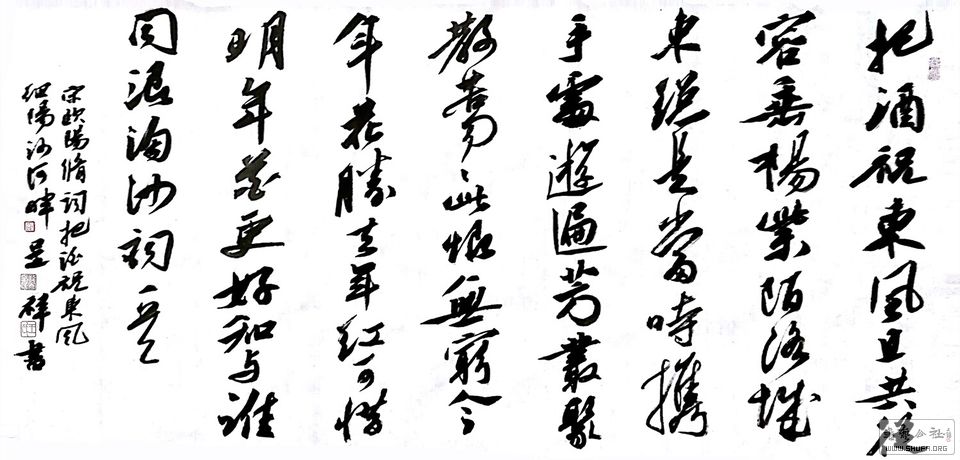 把酒祝東風且共從
容垂楊紫陌洛城
東總是當時攜
手處遊遍芳叢聚
散苦匆匆此恨無窮今
年花勝去年紅可惜
明年花更好知与誰
同浪淘沙詞
宋欧陽脩詞把酒祝東風
细陽沙河畔呈祥書
公社
WWW.SHUFA.ORG